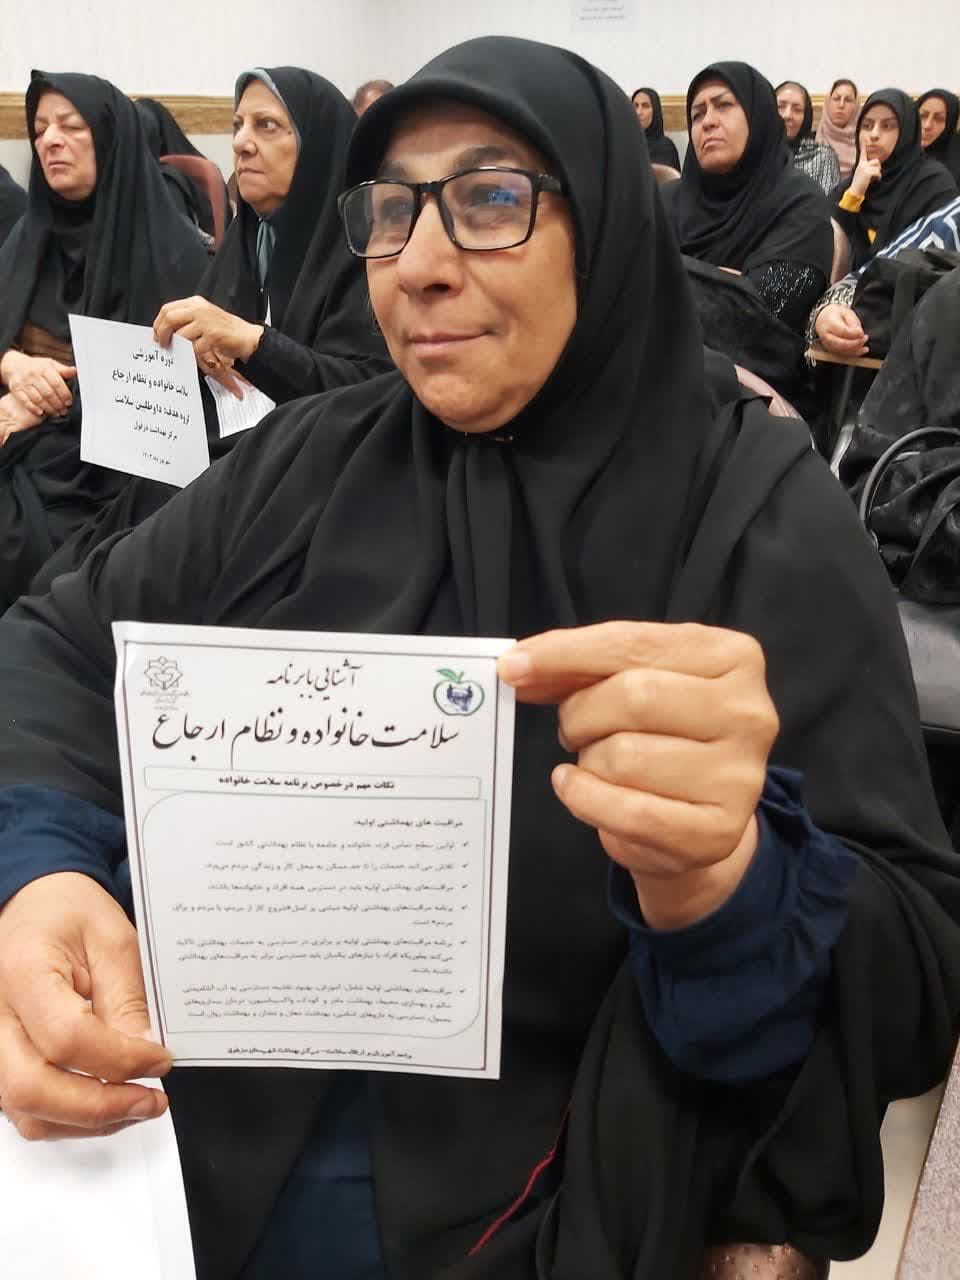 دوره آموزشی
سلامت خانواده و نظام ارجاع
گروه هدف: داوطلبین سلامت
مرکز بهداشت دزفول
شهریور ماه ۱۴۰۳
آشنایی با برنامه
سلامت خانواده و نظام ارجاع
نکات مهم در خصوص برنامه سلامت خانواده
مراقبت های بهداشتی اولیه:
✓ اولین سطح تماس فرد، خانواده و جامعه با نظام بهداشتی کشور است.
✓ تلاش می‌کند خدمات را تا حد ممکن به محل کار و زندگی مردم می‌برد.
✓ مراقبت‌های بهداشتی اولیه باید در دسترس همه افراد و خانواده‌ها باشند.
✓ برنامه مراقبت‌های بهداشتی اولیه مبتنی بر اصل «شروع کار از مردم، با مردم و برای
مردم» است.
✓ برنامه مراقبت‌های بهداشتی اولیه بر برابری در دسترسی به خدمات بهداشتی تاکید
می‌کند بطوریکه افراد با نیازهای یکسان باید دسترسی برابر به مراقبت‌های بهداشتی
داشته باشند.
✓ مراقبت‌های بهداشتی اولیه شامل: آموزش، بهبود تغذیه، دسترسی به آب آشامیدنی
سالم و بهسازی محیط، بهداشت مادر و کودک، واکسیناسیون، درمان بیماری‌های
معمول، دسترسی به داروهای اساسی، بهداشت دهان و دندان و بهداشت روان است.
واحد آموزش و ارتقاء سلامت - مرکز بهداشت شهرستان دزفول